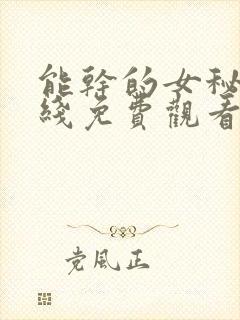 能幹的女秘
綫免費觀看
党風正